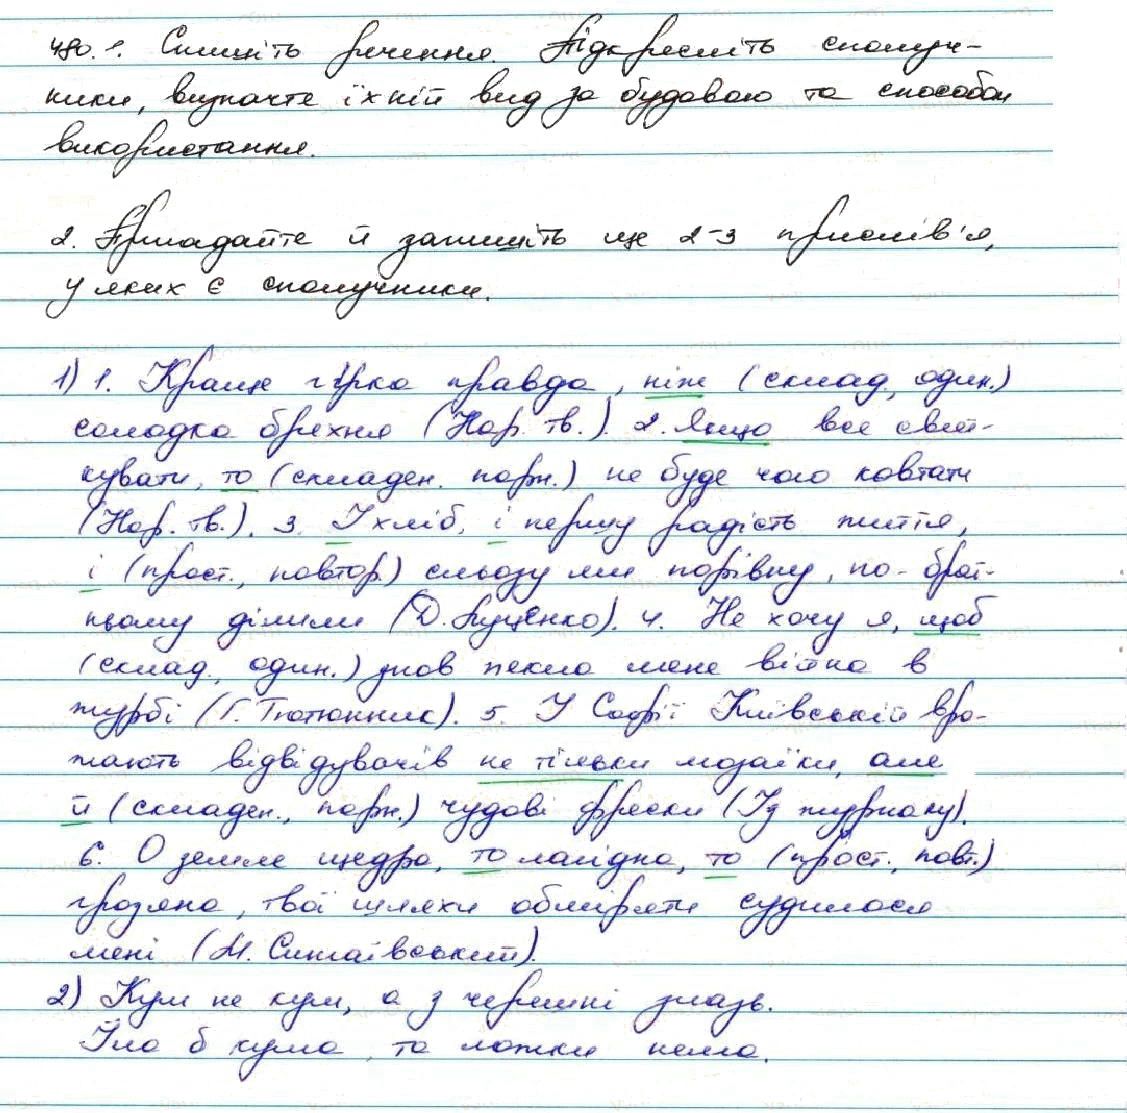 480. 1. Спишіть речення. Підкресліть сполуч-
ники, визначте їхній вид за будовою та способом
використання.
2. Пригадайте й запишіть ще 2-3 прислів'я,
у яких є сполучники.
1) 1. Краще гірка правда, ніж (склад., один.)
солодка брехня (Нар. тв.). 2. Якщо все смієт-
кувати, то (складен. парн.) не буде чого ковтати
(Нар. тв.). 3. І хліб, і першу радість життя,
і (прост., повтор.) сльозу ми порівну, по-брат-
ньому ділили (Д. Луценко). 4. Не хочу я, щоб
(склад., один.) знов пекла мене війна в
журбі (Г. Тютюнник). 5. У Софії Київській вра-
жають відвідувачів не тільки мозаїки, але
й (складен., парн.) чудові фрески (Із журналу).
6. О земле щедра, то лагідна, то (прост., повт.)
грозяна, твої шляхи обміряти судилося
мені (М. Сингаївський).
2) Кум не кум, а з черешні злазь.
Їла б кума, та ложки нема.